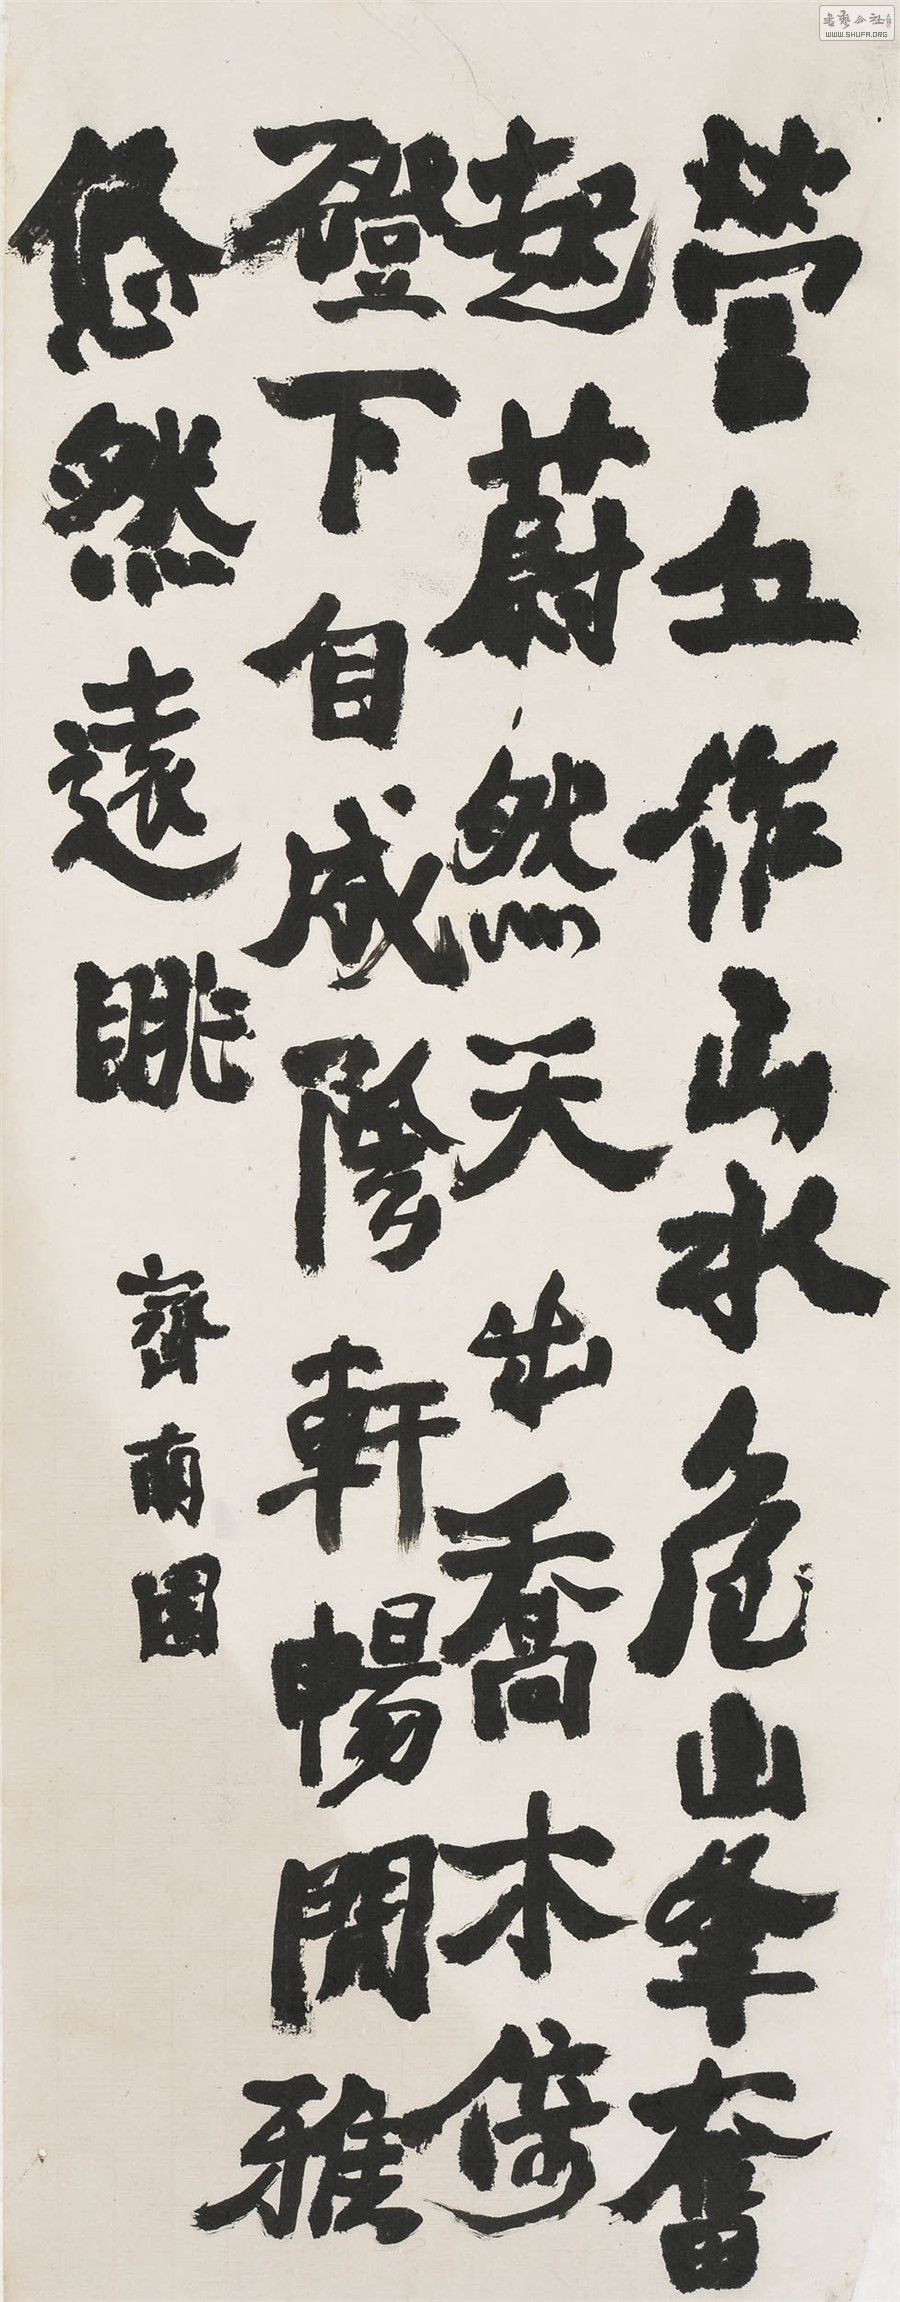 營丘作山水危峯奮
起蔚然天出喬木倚
磴下自成陰軒暢閒雅
悠然遠眺
齊南園
書藝公社
WWW.SHUFA.ORG